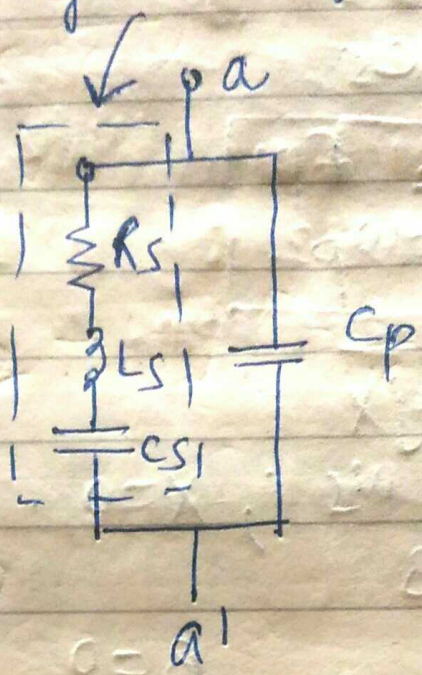 a
Rs
Ls
Cp
Cs
a'